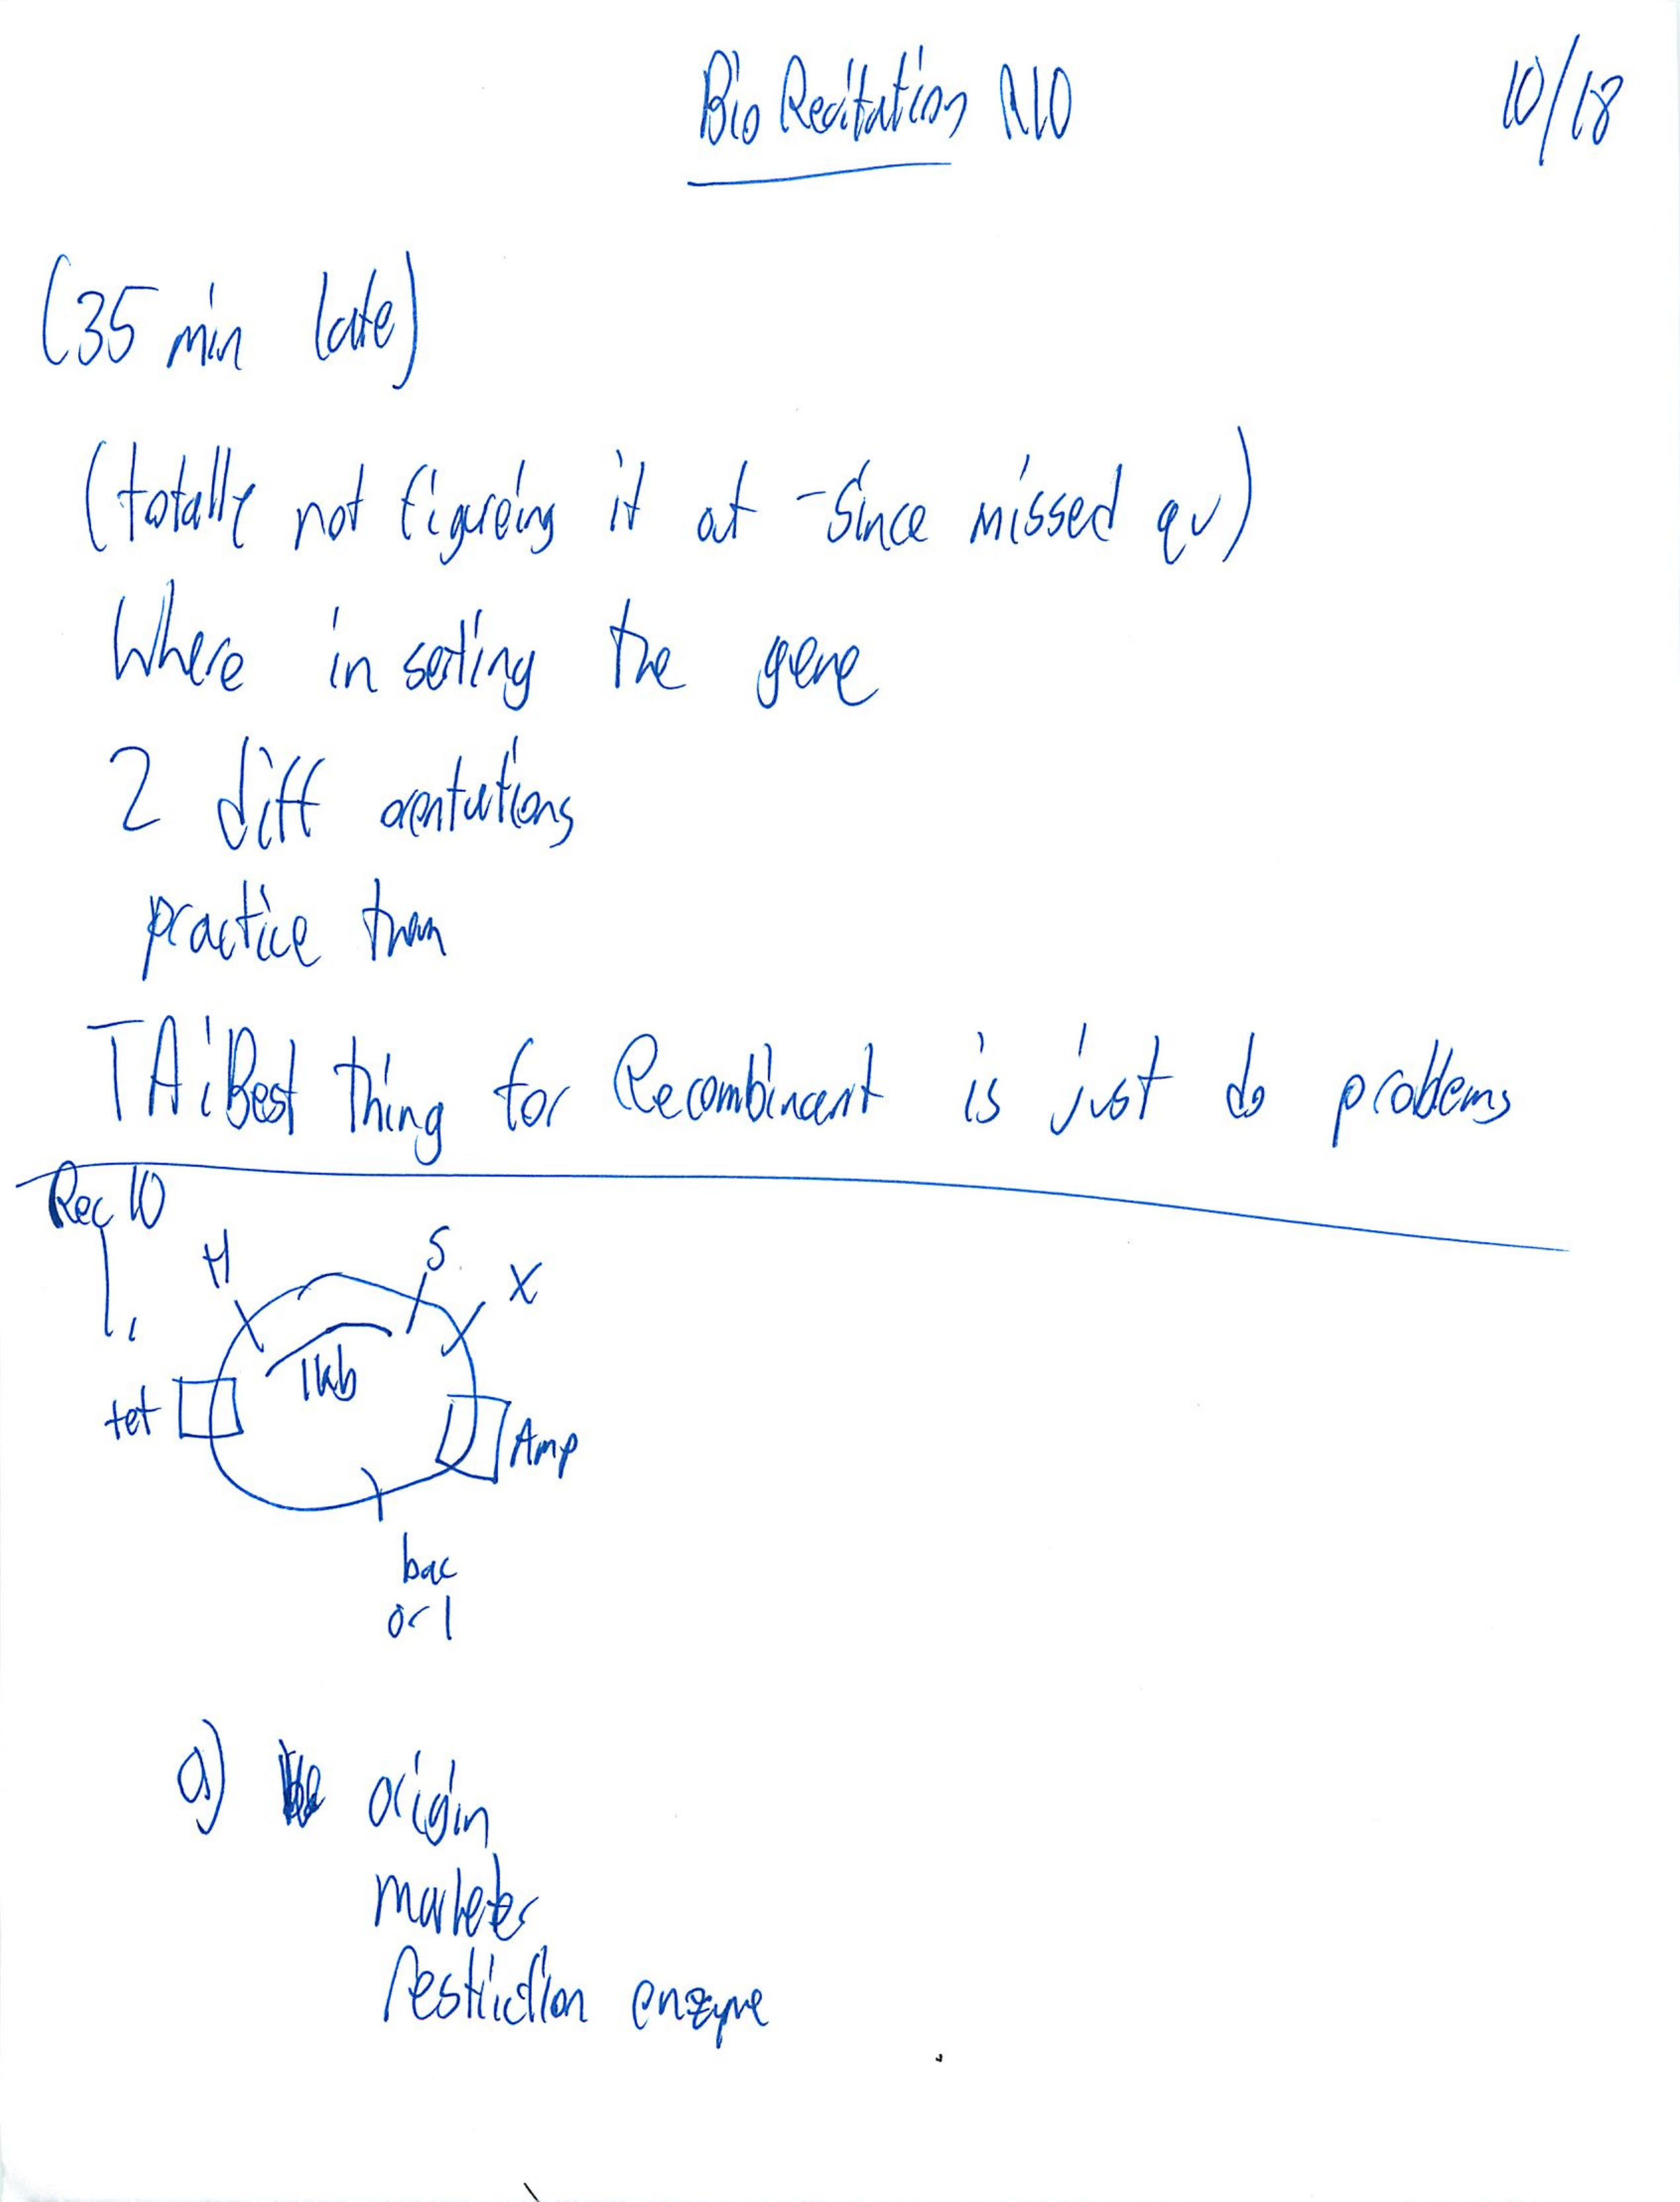 Bio Recitation R10
10/18
(35 min late)
(totally not figureing it out - since missed qu)
Where inserting the gene
2 diff orentations
practice them
TA: Best thing for Recombinant is just do problems
Rec 10
1.
H
S
X
1kb
tet
Amp
bac
ori
a) origin
marker
restriction enzyme